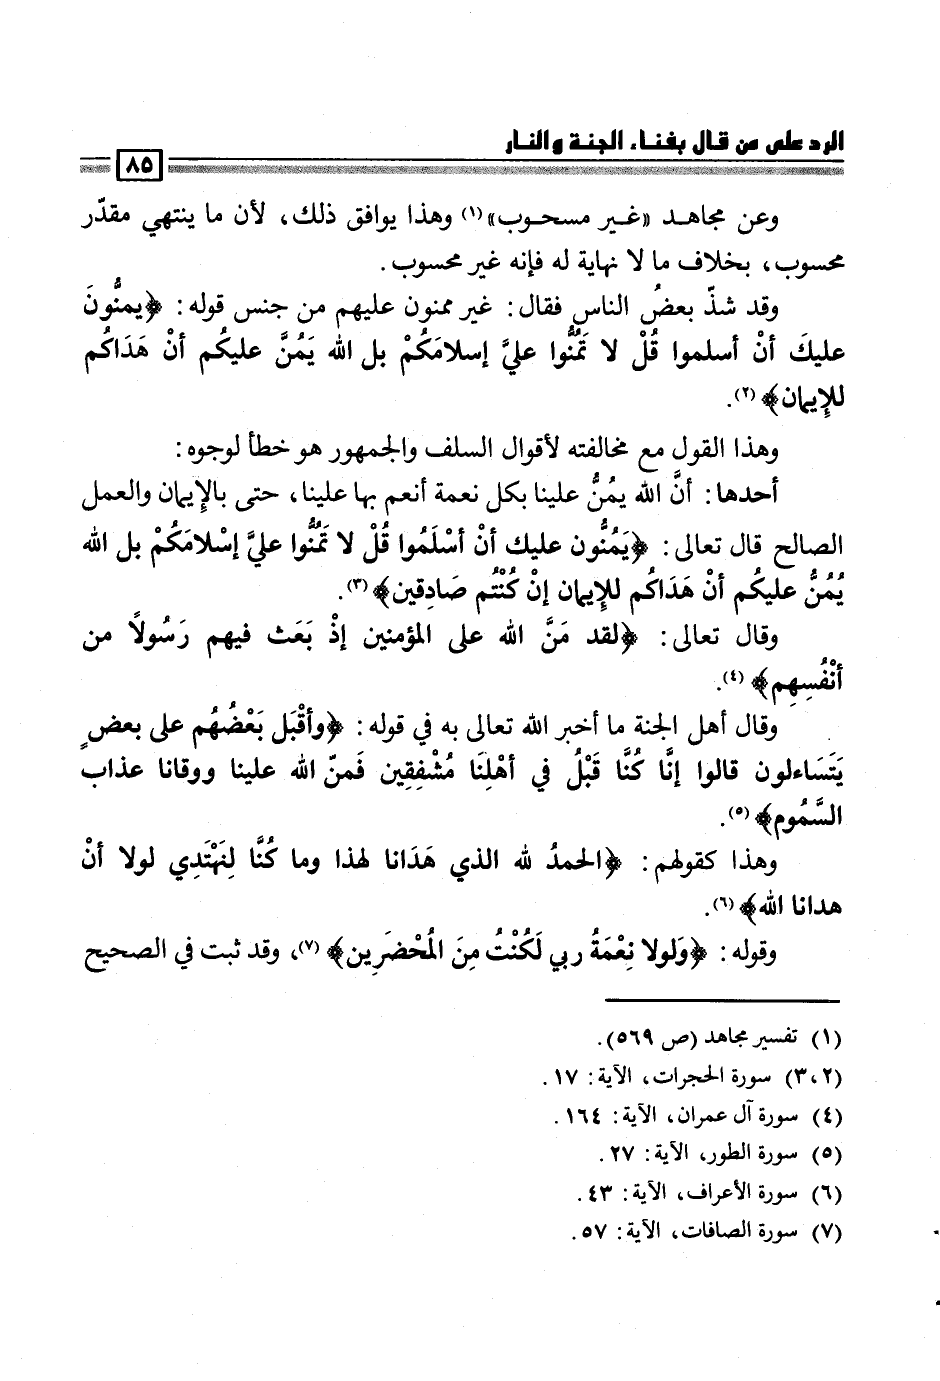 الرد على من قال بفناء الجنة والنار
٨٥
وعن مجاهد «غير مسحوب»(١) وهذا يوافق ذلك، لأن ما ينتهي مقدّر
محسوب، بخلاف ما لا نهاية له فإنه غير محسوب.
وقد شذّ بعضُ الناس فقال: غير ممنون عليهم من جنس قوله: ﴿يمنُّونَ
عليكَ أنْ أسلموا قُلْ لا تَمُنُّوا عليَّ إسلامَكُمْ بل الله يَمُنَّ عليكُم أنْ هَدَاكُم
للإِيمان﴾(٢).
وهذا القول مع مخالفته لأقوال السلف والجمهور هو خطأ لوجوه:
أحدها: أنَّ الله يمُنُّ علينا بكل نعمة أنعم بها علينا، حتى بالإِيمان والعمل
الصالح قال تعالى: ﴿يَمُنُّون عليك أنْ أسْلَمُوا قُلْ لا تَمُنُّوا عليَّ إسْلامَكُمْ بل الله
يُمُنُّ عليكُم أنْ هَدَاكُم للإِيمان إنْ كُنْتُم صَادِقين﴾(٣).
وقال تعالى: ﴿لقد مَنَّ الله على المؤمنين إذْ بَعَث فيهم رَسُولاً من
أنْفُسِهِم﴾(٤).
وقال أهل الجنة ما أخبر الله تعالى به في قوله: ﴿وأقْبَل بَعْضُهُم على بعضٍ
يَتَسَاءلون قالوا إنَّا كُنَّا قَبْلُ في أهْلِنَا مُشْفِقِين فَمنّ الله علينا ووقانا عذاب
السَّمُوم﴾(٥).
وهذا كقولهم: ﴿الحمدُ لله الذي هَدَانا لهذا وما كُنَّا لِنَهْتَدِي لولا أنْ
هدانا الله﴾(٦).
وقوله: ﴿وَلولا نِعْمَةُ ربي لَكُنْتُ مِنَ المُحْضَرِين﴾(٧)، وقد ثبت في الصحيح
(١) تفسير مجاهد (ص ٥٦٩).
(٣،٢) سورة الحجرات، الآية: ١٧.
(٤) سورة آل عمران، الآية: ١٦٤.
(٥) سورة الطور، الآية: ٢٧.
(٦) سورة الأعراف، الآية: ٤٣.
(٧) سورة الصافات، الآية: ٥٧.